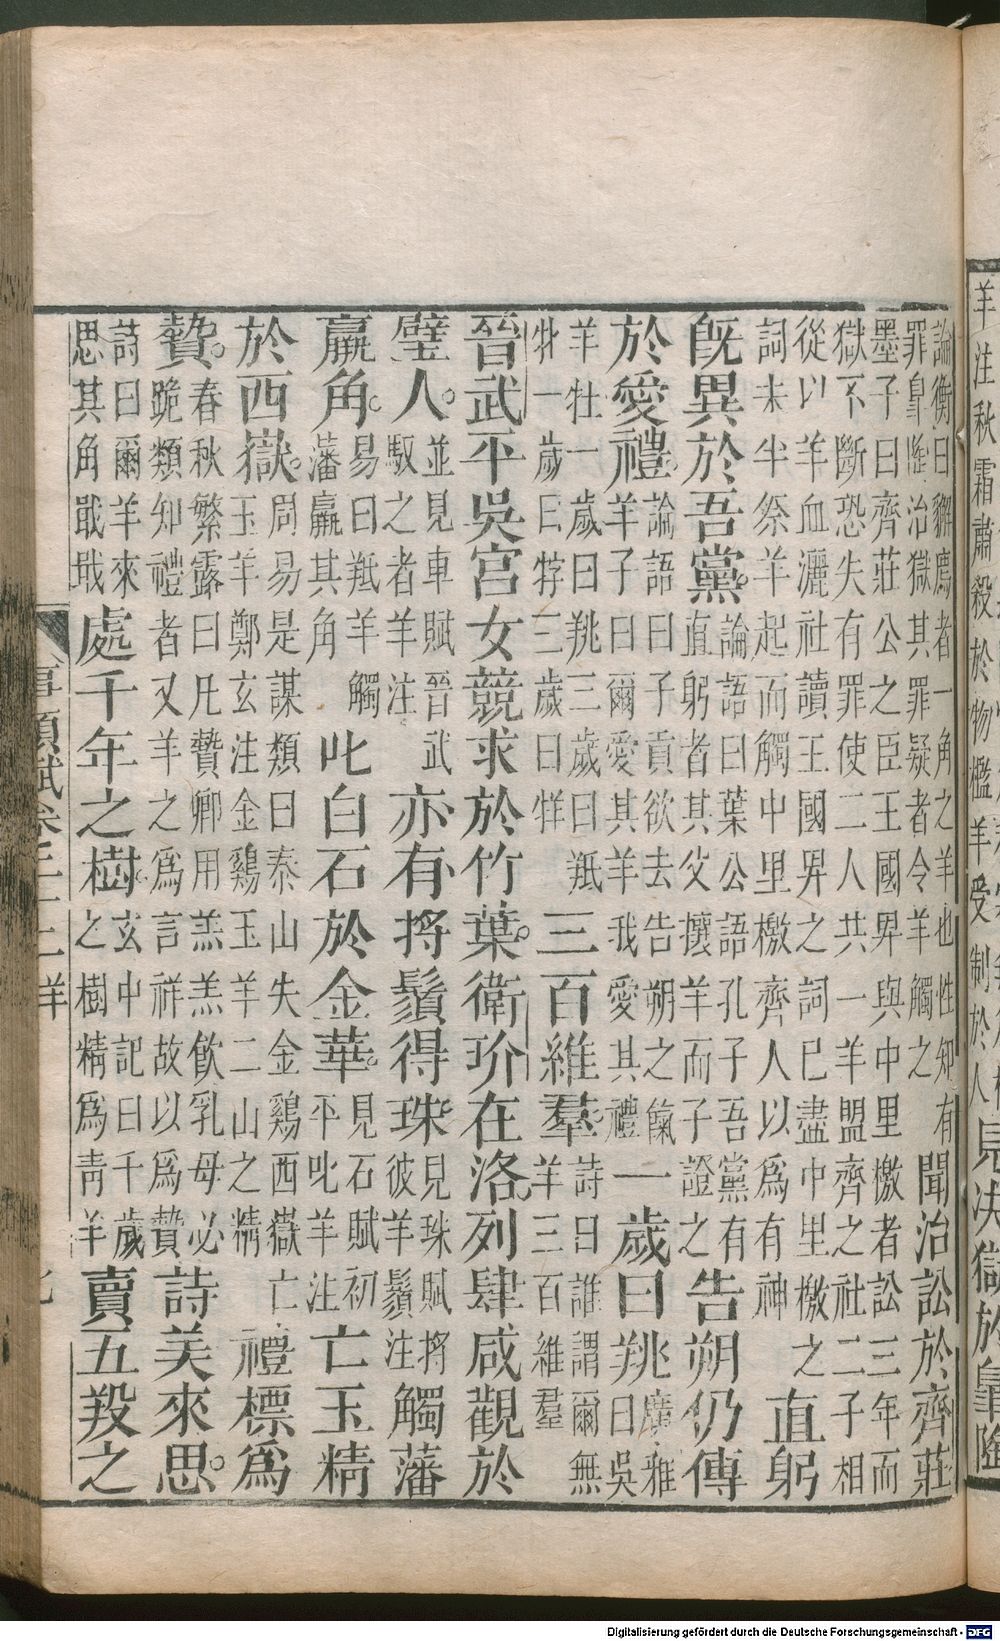 羊注秋霜肅殺於物檻羊受制於人
見决獄於臯陶
論衡曰獬廌者一角之羊也性知有
罪臯陶治獄其罪疑者令羊觸之
聞治訟於齊莊
墨子曰齊莊公之臣王國卑與中里檄者訟三年而
獄不斷恐失有罪使二人共一羊盟齊之社二子相
從以羊血灑社讀王國畀之詞已盡中里檄之
詞未半祭羊起而觸中里檄齊人以為有神
直躬
旣異於吾黨
論語曰葉公語孔子吾黨有
直躬者其父攘羊而子證之
告朔仍傳
於愛禮
論語曰子貢欲去告朔之餼
羊子曰爾愛其羊我愛其禮
一歲曰䍮
廣雅
曰吳
羊牡一歲曰䍮三歲曰羝
牝一歲曰牸三歲曰牂
三百維羣
詩曰誰謂爾無
羊三百維羣
晉武平吳宮女競求於竹葉衛玠在洛列肆咸觀於
璧人
並見車賦晉武
馭之者羊注
亦有將鬚得珠
見珠賦將
彼羊鬚注
觸藩
羸角
易曰羝羊觸
藩羸其角
叱白石於金華
見石賦初
平叱羊注
亡玉精
於西嶽
周易是謀類曰泰山失金鷄西嶽亡
玉羊鄭玄注金鷄玉羊二山之精
禮標為
贄
春秋繁露曰凡贄卿用羔羔飲乳母必
跪類知禮者又羊之為言祥故以為贄
詩美來思
詩曰爾羊來
思其角戢戢
處千年之樹
玄中記曰千歲
之樹精為青羊
賣五羖之
事類賦卷二十二 羊
Digitalisierung gefördert durch die Deutsche Forschungsgemeinschaft - DFG